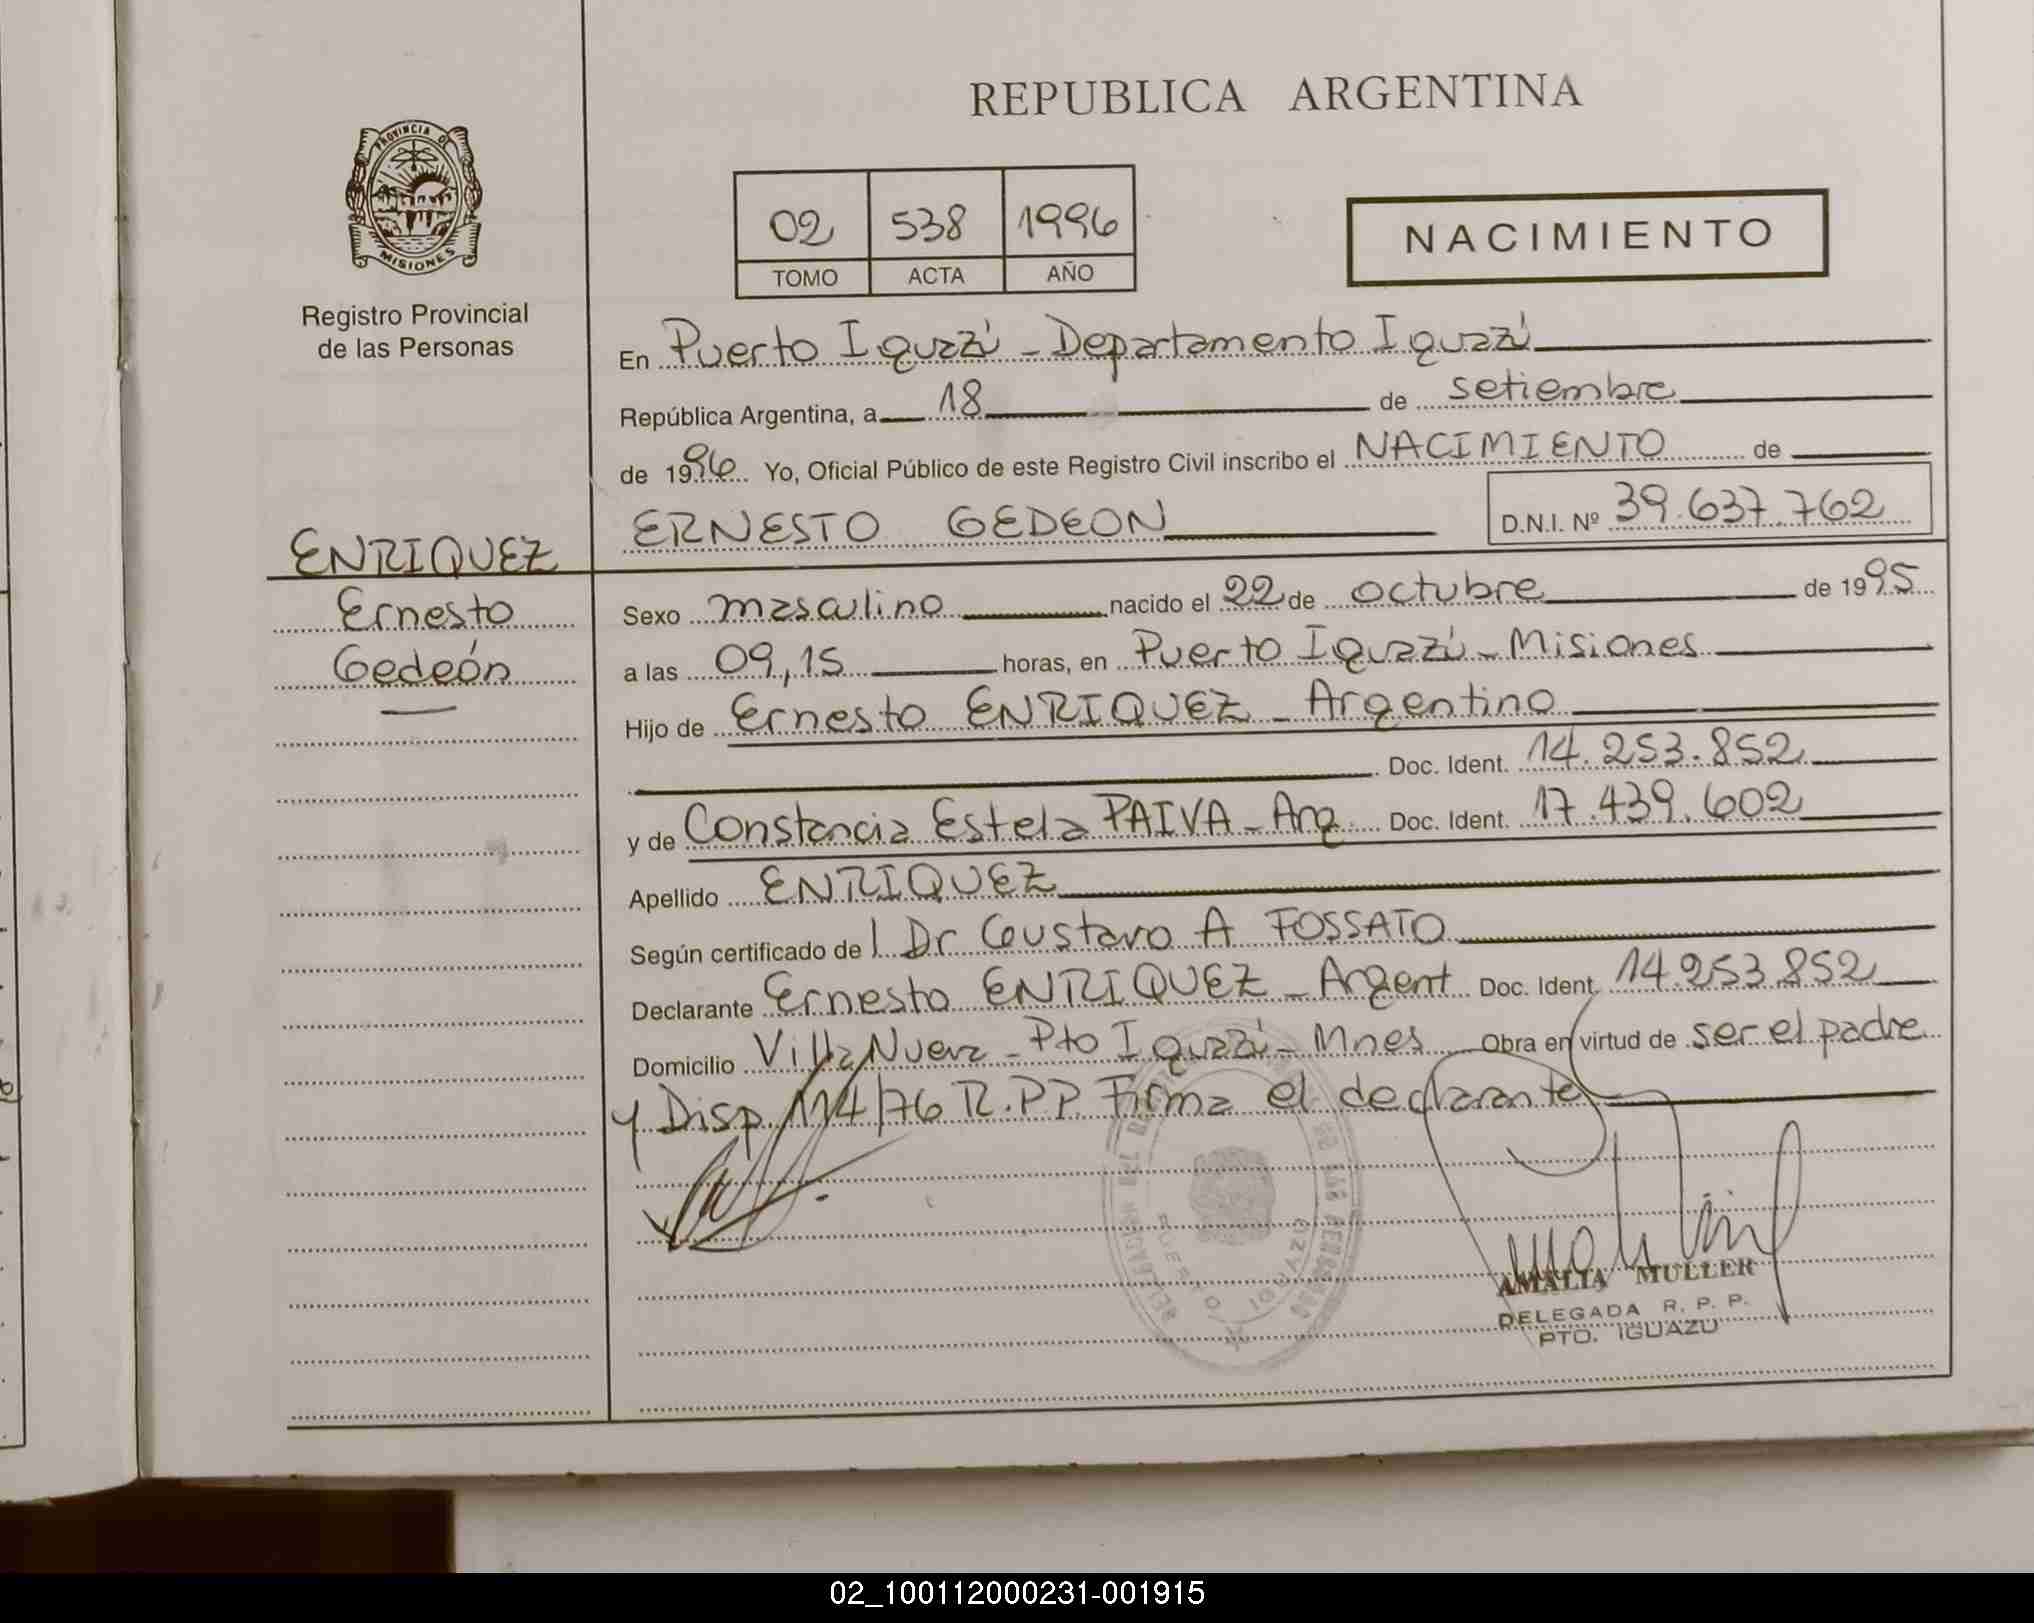 REPUBLICA ARGENTINA
PROVINCIA DE
MISIONES
Registro Provincial
de las Personas
02 538 1996
TOMO ACTA AÑO
NACIMIENTO
En Puerto Iguazú - Departamento Iguazú
República Argentina, a 18 de setiembre
de 1996 Yo, Oficial Público de este Registro Civil inscribo el NACIMIENTO de
ERNESTO GEDEON D.N.I. Nº 39.637.762
ENRIQUEZ
Ernesto
Gedeón
Sexo masculino nacido el 22 de octubre de 1995
a las 09,15 horas, en Puerto Iguazú - Misiones
Hijo de Ernesto ENRIQUEZ - Argentino
Doc. Ident. 14.253.852
y de Constancia Estela PAIVA - Arg Doc. Ident. 17.439.602
Apellido ENRIQUEZ
Según certificado de l Dr Gustavo A FOSSATO
Declarante Ernesto ENRIQUEZ - Argent Doc. Ident. 14.253.852
Domicilio Villa Nueva - Pto Iguazú - Mnes Obra en virtud de ser el padre
y Disp 114/76 R.P.P. Firma el declarante
PUERTO IGUAZU
AMALIA MULLER
DELEGADA R. P. P.
PTO. IGUAZU
02_100112000231-001915